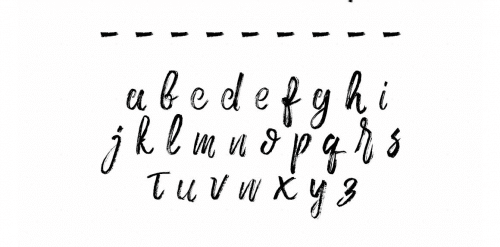 a b c d e f g h i
j k l m n o p q r s
t u v w x y z